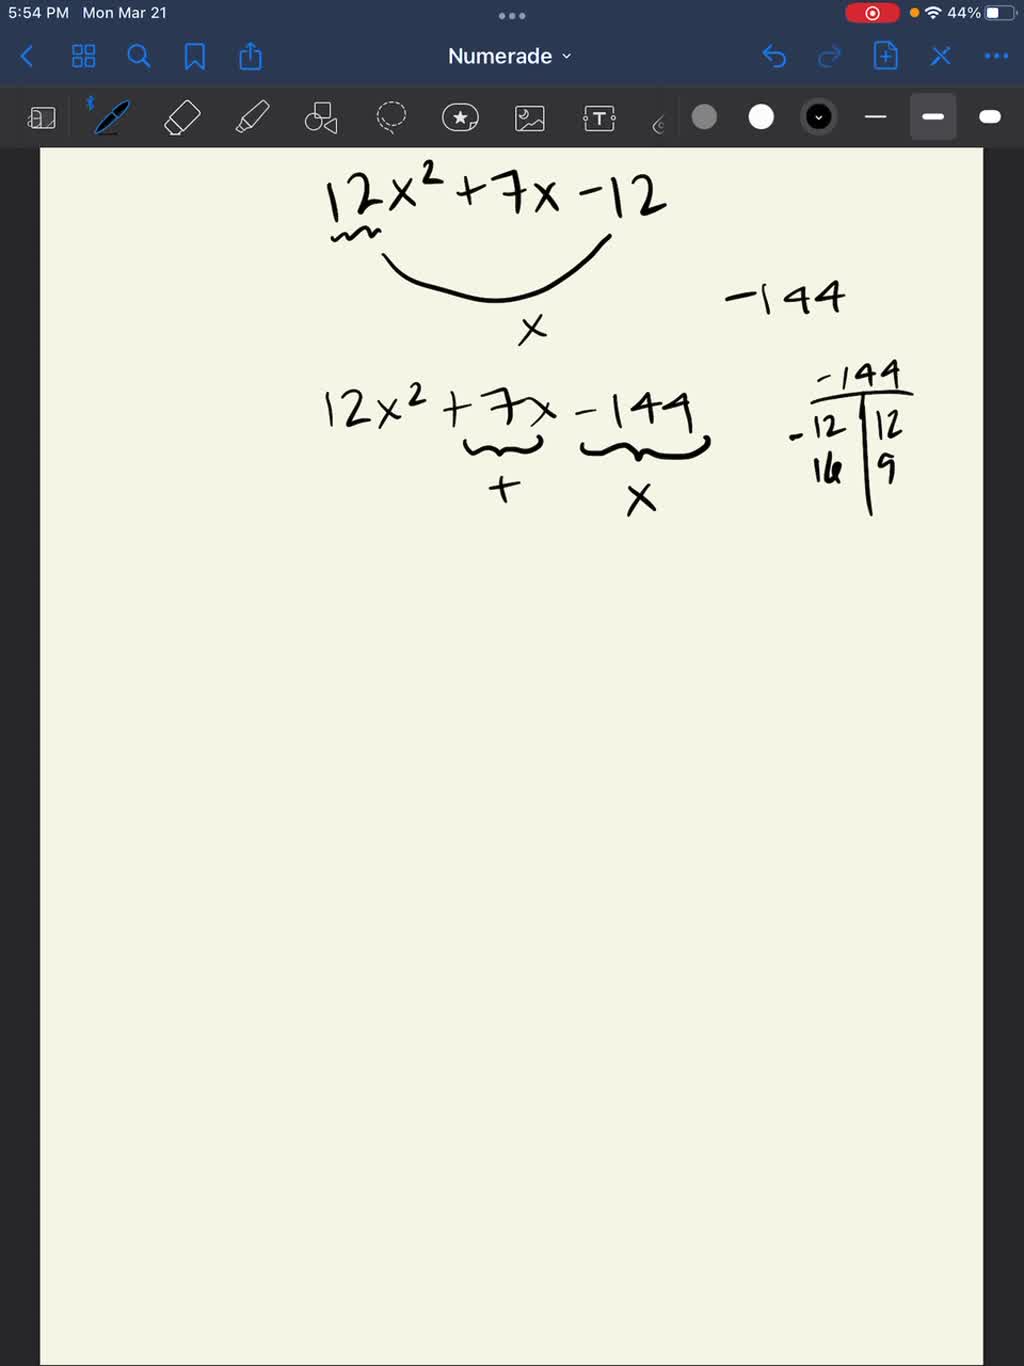 5:54 PM Mon Mar 21 44%
Numerade
T
12x² +7x -12
x
-144
12x² +7x -144
+ x
-144
-12 12
16 9